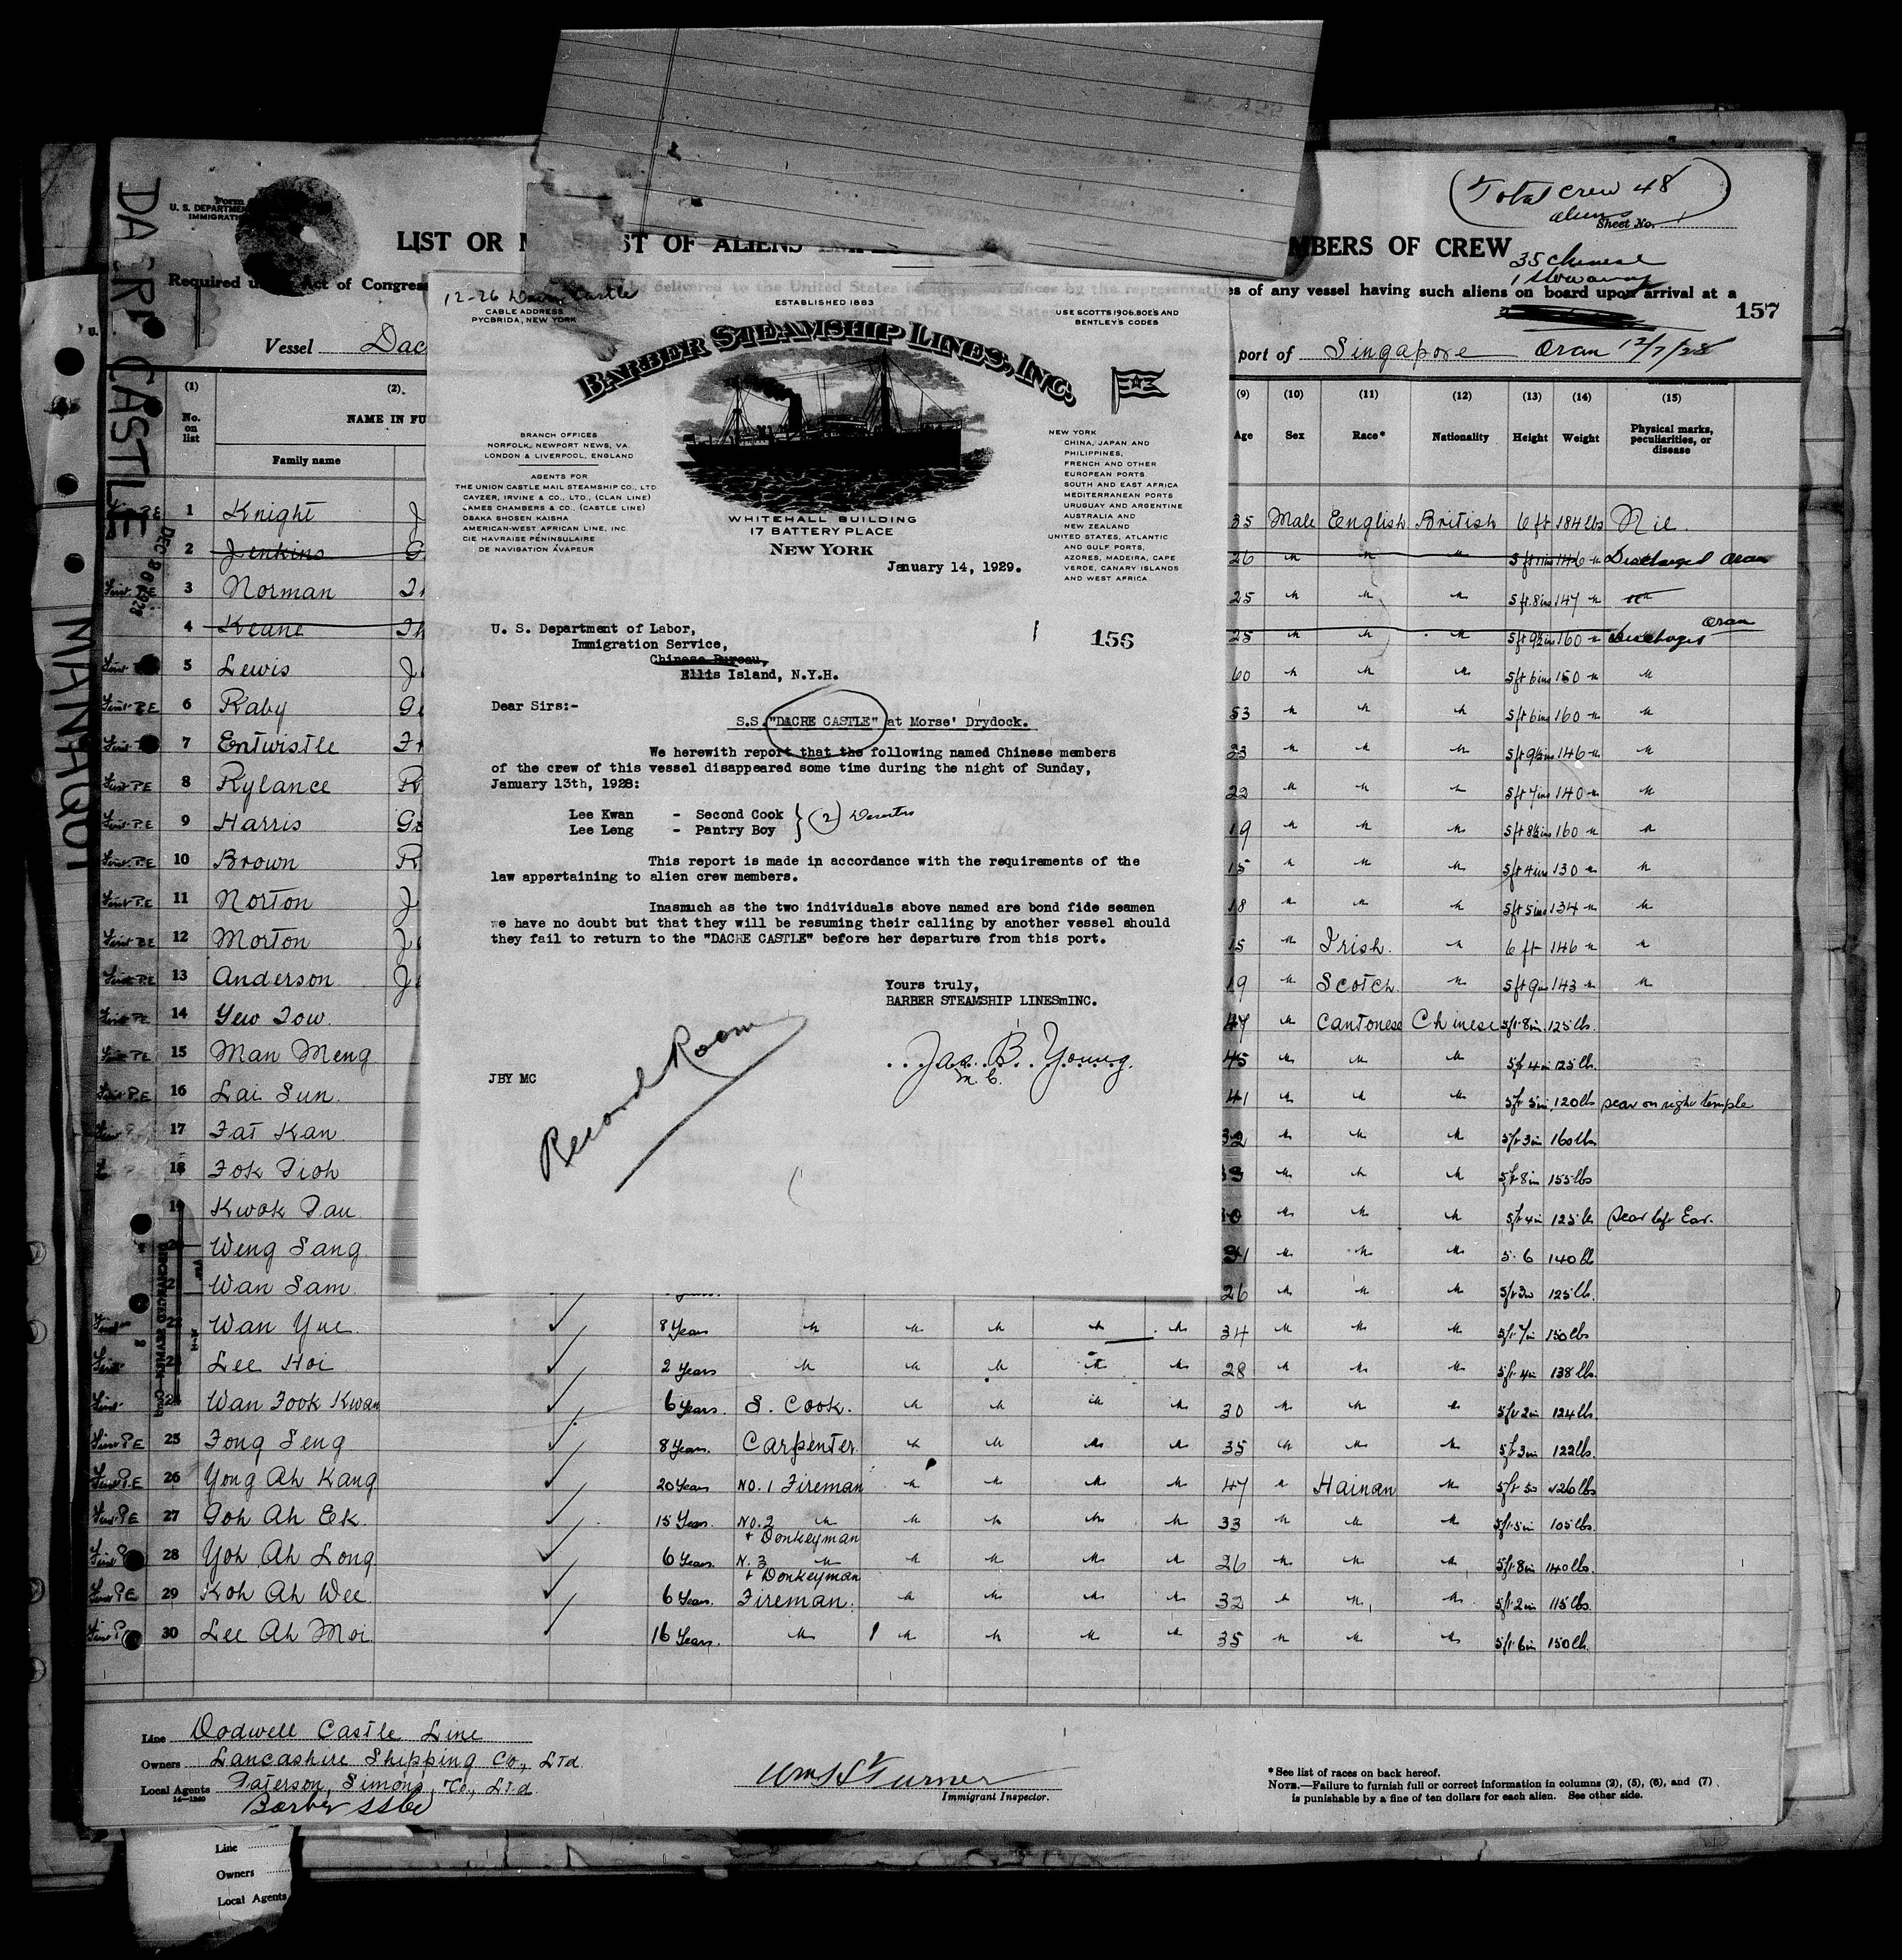 Total crew 48
aliens
Sheet No.
DACRE CASTLE
MANHQDI
U. S. DEPARTMENT
LIST OR
ST OF ALIENS
MBERS OF CREW
35 Chinese
1 Stowaway
Required
Act of Congress
be delivered to the United States
es of any vessel having such aliens on board upon arrival at a
157
Vessel Dac
port of Singapore Oran 12/7/28
(1) (2) (9) (10) (11) (12) (13) (14) (15)
No. on list
NAME IN FU
Family name
Age Sex Race* Nationality Height Weight Physical marks, peculiarities, or disease
DEC 26 1928
12-26 Dacre Castle
CABLE ADDRESS
PYCBRIDA, NEW YORK
ESTABLISHED 1883
USE SCOTTS 1906.BOE'S AND
BENTLEY'S CODES
BARBER STEAMSHIP LINES, INC.
BRANCH OFFICES
NORFOLK, NEWPORT NEWS, VA.
LONDON & LIVERPOOL, ENGLAND
AGENTS FOR
THE UNION CASTLE MAIL STEAMSHIP CO., LTD.
CAYZER, IRVINE & CO., LTD., (CLAN LINE)
JAMES CHAMBERS & CO., (CASTLE LINE)
OSAKA SHOSEN KAISHA
AMERICAN-WEST AFRICAN LINE, INC.
CIE HAVRAISE PÉNINSULAIRE
DE NAVIGATION ÀVAPEUR
NEW YORK
CHINA, JAPAN AND
PHILIPPINES,
FRENCH AND OTHER
EUROPEAN PORTS
SOUTH AND EAST AFRICA
MEDITERRANEAN PORTS
URUGUAY AND ARGENTINE
AUSTRALIA AND
NEW ZEALAND
UNITED STATES, ATLANTIC
AND GULF PORTS,
AZORES, MADEIRA, CAPE
VERDE, CANARY ISLANDS
AND WEST AFRICA
WHITEHALL BUILDING
17 BATTERY PLACE
NEW YORK
January 14, 1929.
U. S. Department of Labor,
Immigration Service,
Chinese Bureau,
Ellis Island, N.Y.H.
156
Dear Sirs:-
S.S. "DACRE CASTLE" at Morse' Drydock.
We herewith report that the following named Chinese members
of the crew of this vessel disappeared some time during the night of Sunday,
January 13th, 1928:
Lee Kwan - Second Cook
Lee Leng - Pantry Boy
(2) Deserters
This report is made in accordance with the requirements of the
law appertaining to alien crew members.
Inasmuch as the two individuals above named are bond fide seamen
we have no doubt but that they will be resuming their calling by another vessel should
they fail to return to the "DACRE CASTLE" before her departure from this port.
Yours truly,
BARBER STEAMSHIP LINESmINC.
Jas. B. Young
M. C.
JBY MC
Record Room
1 Knight J 35 Male English British 6 ft 184 lbs Nil.
2 Jenkins G 26 " " " 5 ft 11 ins 146 " Discharged Oran
3 Norman Th 25 " " " 5 ft 8 ins 147 "
4 Keane Th 25 " " " 5 ft 9½ ins 160 " discharged Oran
5 Lewis J 60 " " " 5 ft 6 ins 150 " "
6 Raby Ge 53 " " " 5 ft 6 ins 160 " "
7 Entwistle Fr 23 " " " 5 ft 9½ ins 146 " "
8 Rylance R 22 " " " 5 ft 7 ins 140 " "
9 Harris Ge 19 " " " 5 ft 8½ ins 160 " "
10 Brown R 15 " " " 5 ft 4 ins 130 " "
11 Norton J 18 " " " 5 ft 5 ins 134 " "
12 Morton J 15 " Irish. " 6 ft 146 " "
13 Anderson J 19 " Scotch. " 5 ft 9 ins 143 " "
14 Yew Tow. 47 " Cantonese Chinese 5 ft 8 in 125 lb.
15 Man Meng 45 " " " 5 ft 4 in 125 lb.
16 Lai Sun. 41 " " " 5 ft 5 in 120 lb scar on right temple
17 Fat Kan 32 " " " 5 ft 3 in 160 lbs
18 Fok Tioh " " " 5 ft 8 in 155 lbs
19 Kwok Pau " " " 5 ft 4 in 125 lb Scar left Ear.
Weng Sang " " " 5. 6 140 lb
Wan Sam 26 " " " 125 lb.
Wan Yue 8 Years " " " " " 34 " " " 5 ft 7 in 130 lbs
Lee Hoi 2 Years " " " " " 28 " " " 5 ft 4 in 138 lbs.
24 Wan Fook Kwan 6 Years. S. Cook. " " " " 30 " " " 5 ft 2 in 124 lb.
25 Fong Seng 8 Years. Carpenter " " " " 35 " " " 5 ft 3 in 122 lb.
26 Yong Ah Kang 20 Years No. 1 Fireman " " " " 47 " Hainan " 126 lbs
27 Goh Ah Ek. 15 Years. No. 2 " + Donkeyman " " " " 33 " " " 5 ft 5 in 105 lbs.
28 Yoh Ah Long 6 Years. N. 3 " + Donkeyman " " " " 26 " " " 5 ft 8 in 140 lbs.
29 Koh Ah Wee 6 Years. Fireman. " " " " 32 " " " 5 ft 2 in 115 lbs.
30 Lee Ah Moi 16 Years. " " " " " 35 " " " 5 ft 6 in 150 lb.
Line Dodwell Castle Line
Owners Lancashire Shipping Co., Ltd.
Local Agents Paterson, Simons, Co., Ltd.
Barber SS Co
14-1240
Wm S Turner
Immigrant Inspector.
*See list of races on back hereof.
NOTE.—Failure to furnish full or correct information in columns (2), (5), (6), and (7)
is punishable by a fine of ten dollars for each alien. See other side.
Line
Owners
Local Agents